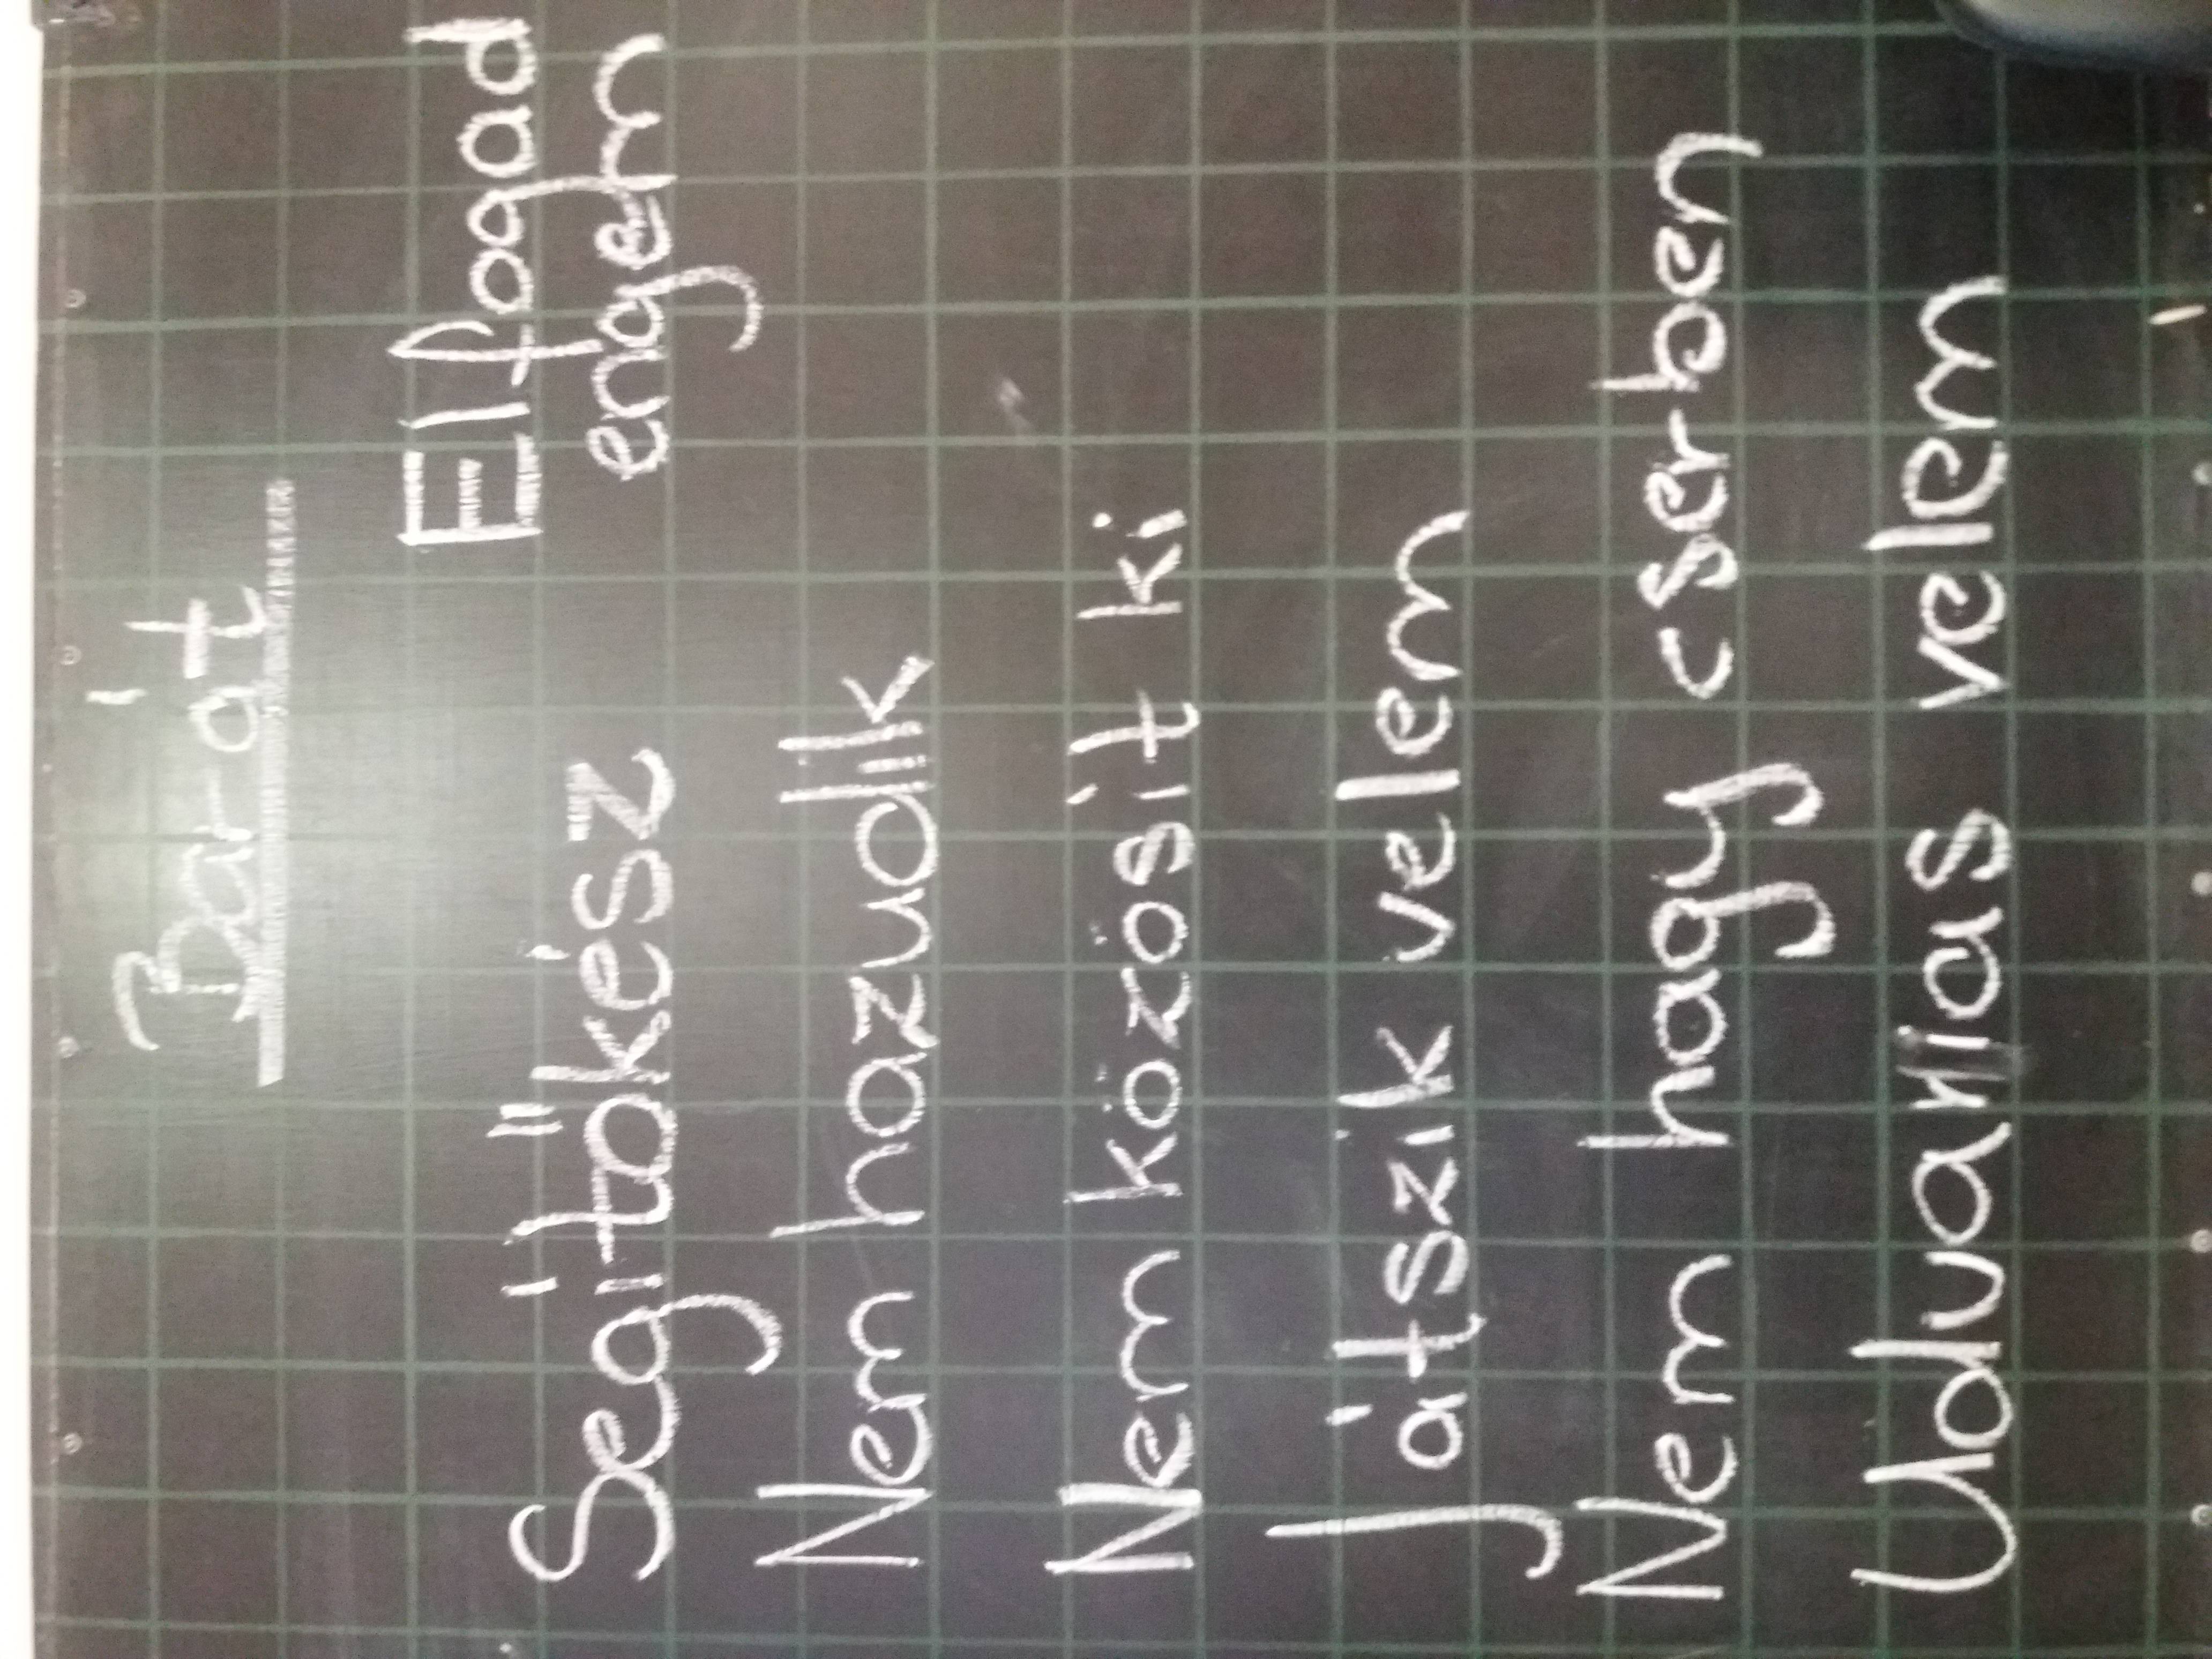 Barát
Elfogad
engem
Segítőkész
Nem hazudik
Nem közösít ki
Játszik velem
Nem hagy cserben
Udvarias velem